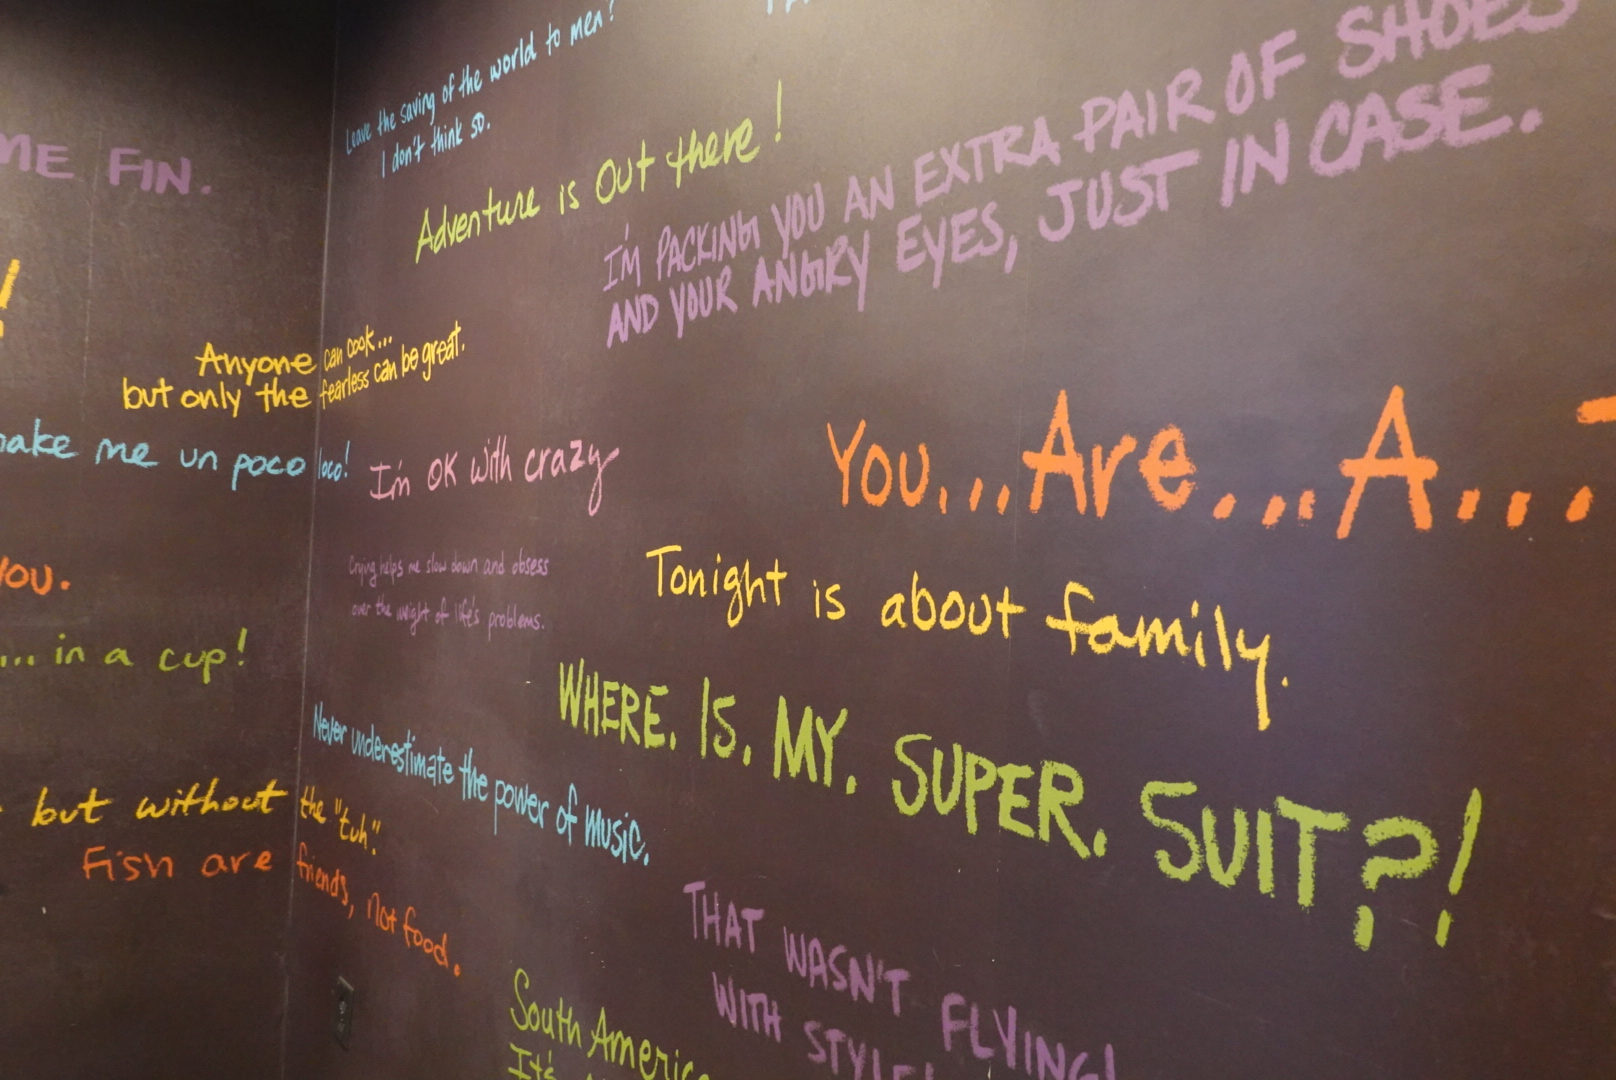 Leave the saving of the world to men?
I don't think so.
Adventure is out there!
I'M PACKING YOU AN EXTRA PAIR OF SHOES
AND YOUR ANGRY EYES, JUST IN CASE.
ME FIN.
!
Anyone can cook...
but only the fearless can be great.
make me un poco loco!
I'm OK with crazy
YOU... Are... A...
Crying helps me slow down and obsess
over the weight of life's problems.
YOU.
Tonight is about family.
... in a cup!
WHERE. IS. MY. SUPER. SUIT?!
Never underestimate the power of music.
but without the "tuh".
Fish are friends, not food.
THAT WASN'T FLYING!
WITH STYLE!
South America
It's